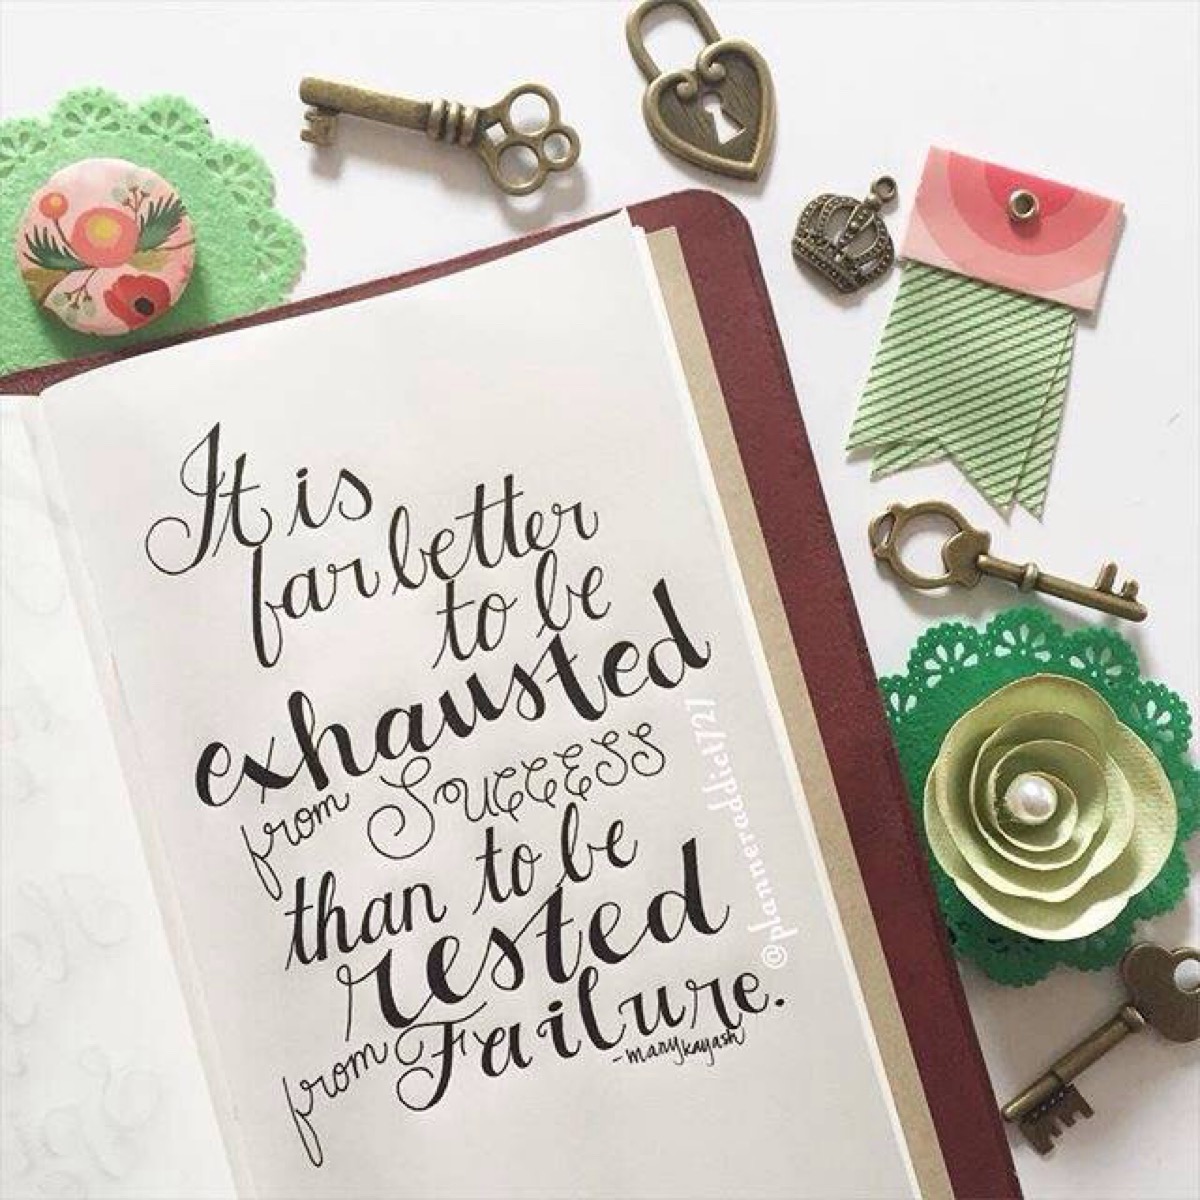 It is
far better
to be
exhausted
from Success
than to be
rested
from Failure.
-mary kay ash
@planneraddict721